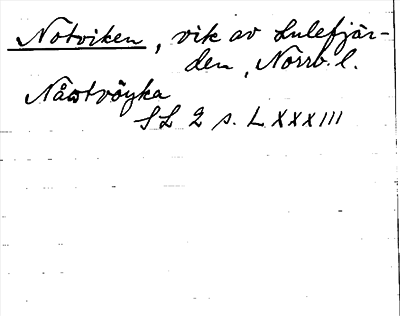 Notviken, vik av Lulefjär-
den, Norrb. l.
Nåωtvöyka
SL 2 s. LXXXIII